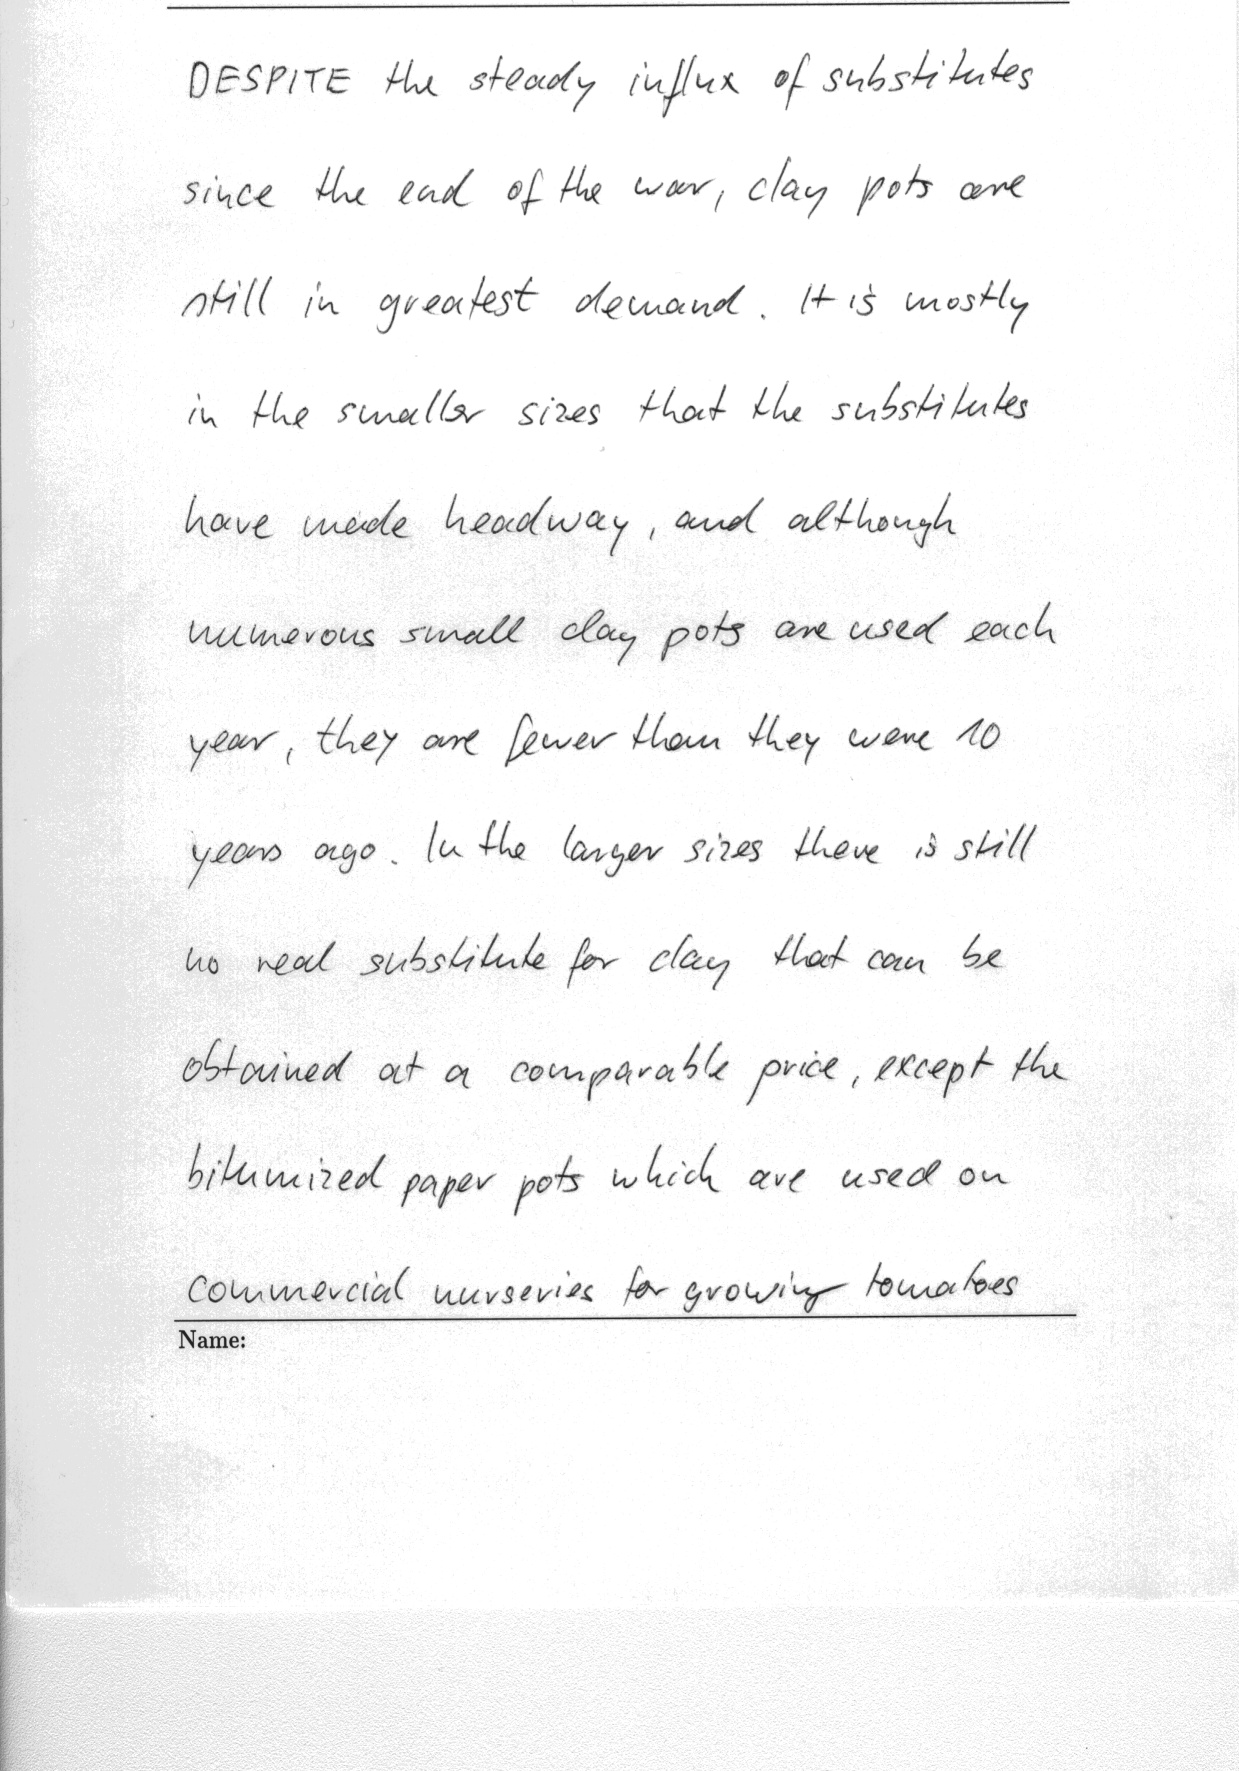 DESPITE the steady influx of substitutes
since the end of the war, clay pots are
still in greatest demand. It is mostly
in the smaller sizes that the substitutes
have made headway, and although
numerous small clay pots are used each
year, they are fewer than they were 10
years ago. In the larger sizes there is still
no real substitute for clay that can be
obtained at a comparable price, except the
bitumized paper pots which are used on
commercial nurseries for growing tomatoes
Name: